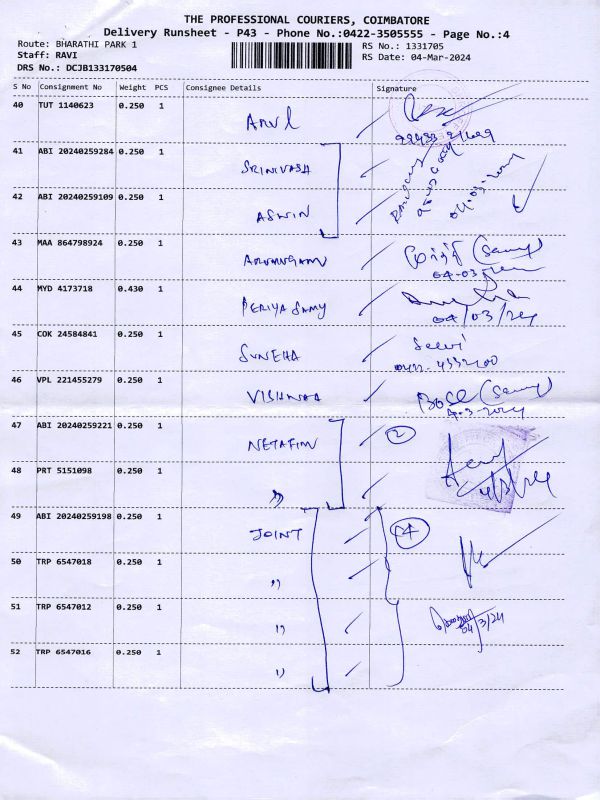 THE PROFESSIONAL COURIERS, COIMBATORE
Delivery Runsheet - P43 - Phone No.:0422-3505555 - Page No.:4
Route: BHARATHI PARK 1
RS No.: 1331705
Staff: RAVI
RS Date: 04-Mar-2024
DRS No.: DCJB133170504
S No Consignment No Weight PCS Consignee Details Signature
40 TUT 1140623 0.250 1 ARUL
41 ABI 20240259284 0.250 1 SRINIVASA
42 ABI 20240259109 0.250 1 ASWIN
04-03-2024
43 MAA 864798924 0.250 1 ARUMUGAM
04-03-2024
44 MYD 4173718 0.430 1 PERIYA SAMY
04/03/24
45 COK 24584841 0.250 1 SUNEHA Selvi
0422-4332400
46 VPL 221455279 0.250 1 VISHNAA
47 ABI 20240259221 0.250 1 NETAFIM 2
48 PRT 5151098 0.250 1 "
4/3/24
49 ABI 20240259198 0.250 1 JOINT 4
50 TRP 6547018 0.250 1 "
51 TRP 6547012 0.250 1 "
04/3/24
52 TRP 6547016 0.250 1 "